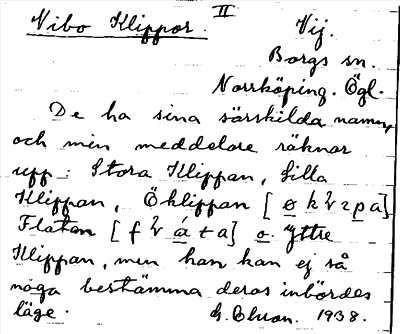 II
Vibo Klippor. Vij.
Borgs sn.
Norrköping. Ögl.
De ha sina särskilda namn,
och min meddelare räknar
upp: Stora Klippan, Lilla
Klippan, Öklippan
Flatan o. Yttre
Klippan, men han kan ej så
noga bestämma deras inbördes
läge. 1938.